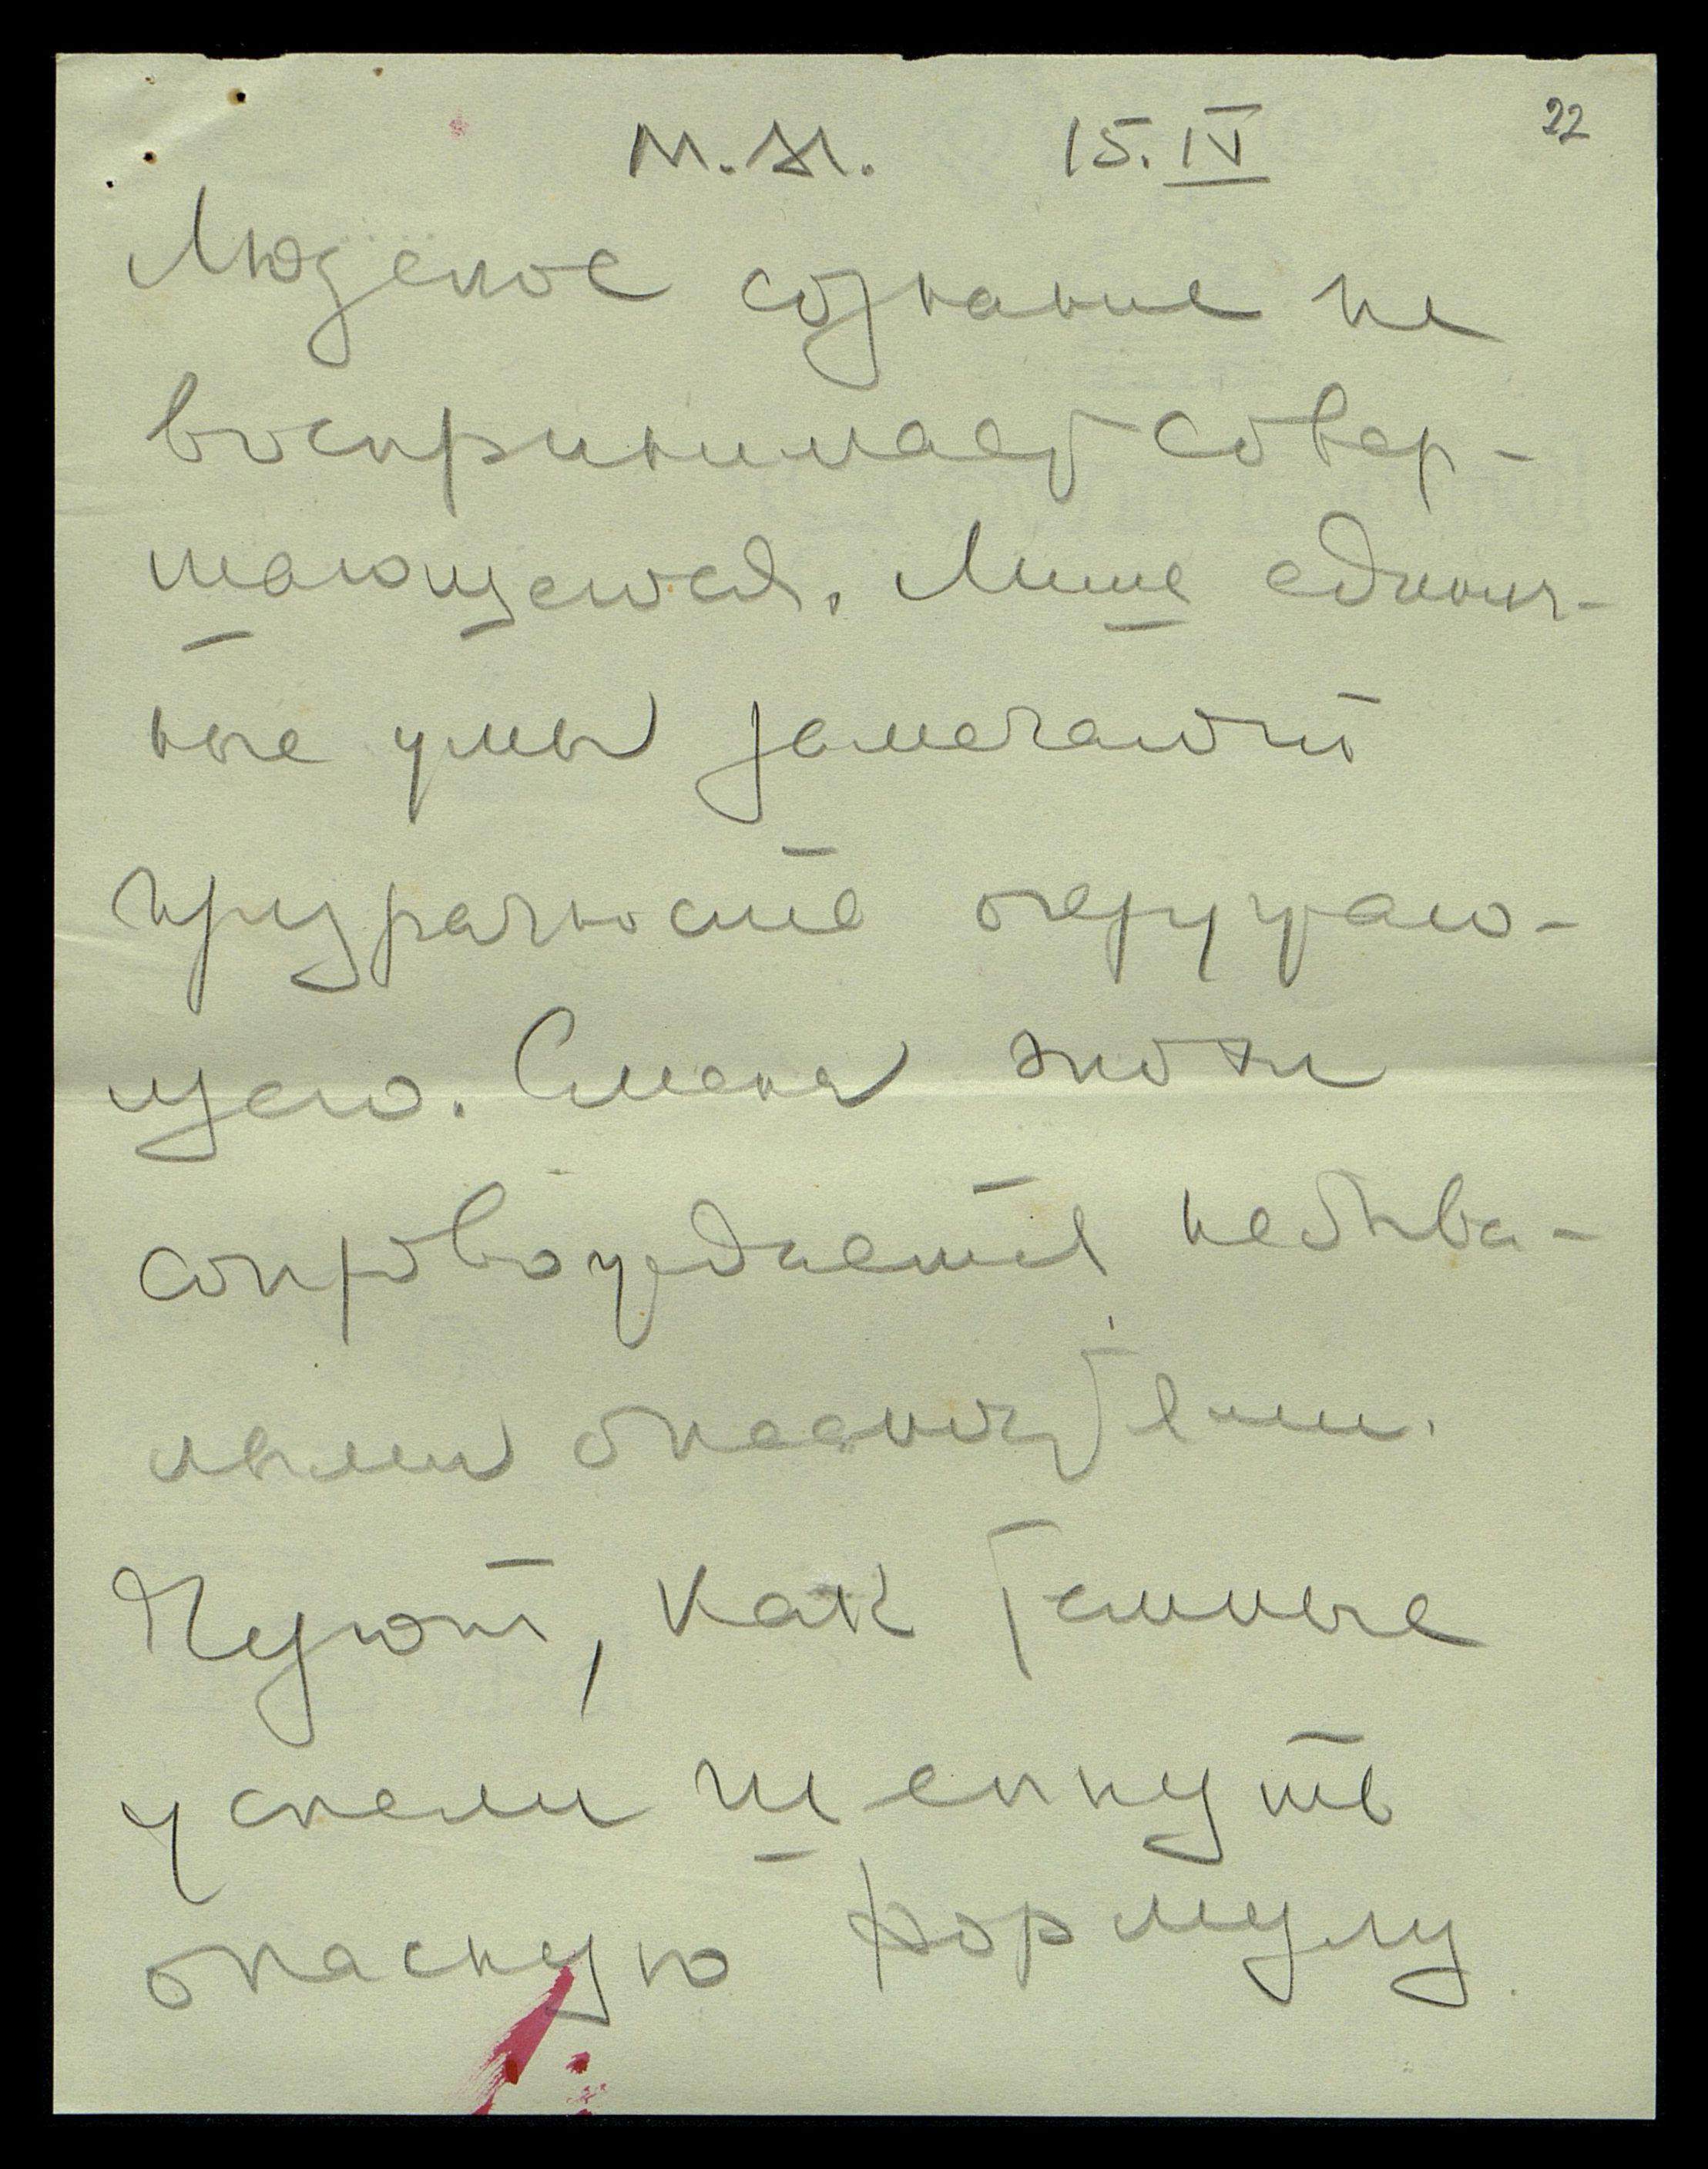 М.И. 15.IV 22
Людское сознание не
воспринимает совер-
шающегося. Лишь единич-
ные умы замечают
призрачность окружаю-
щего. Смена эпохи
сопровождается небыва-
лыми опасностями.
Чуют, как темные
успели шепнуть
опасную формулу